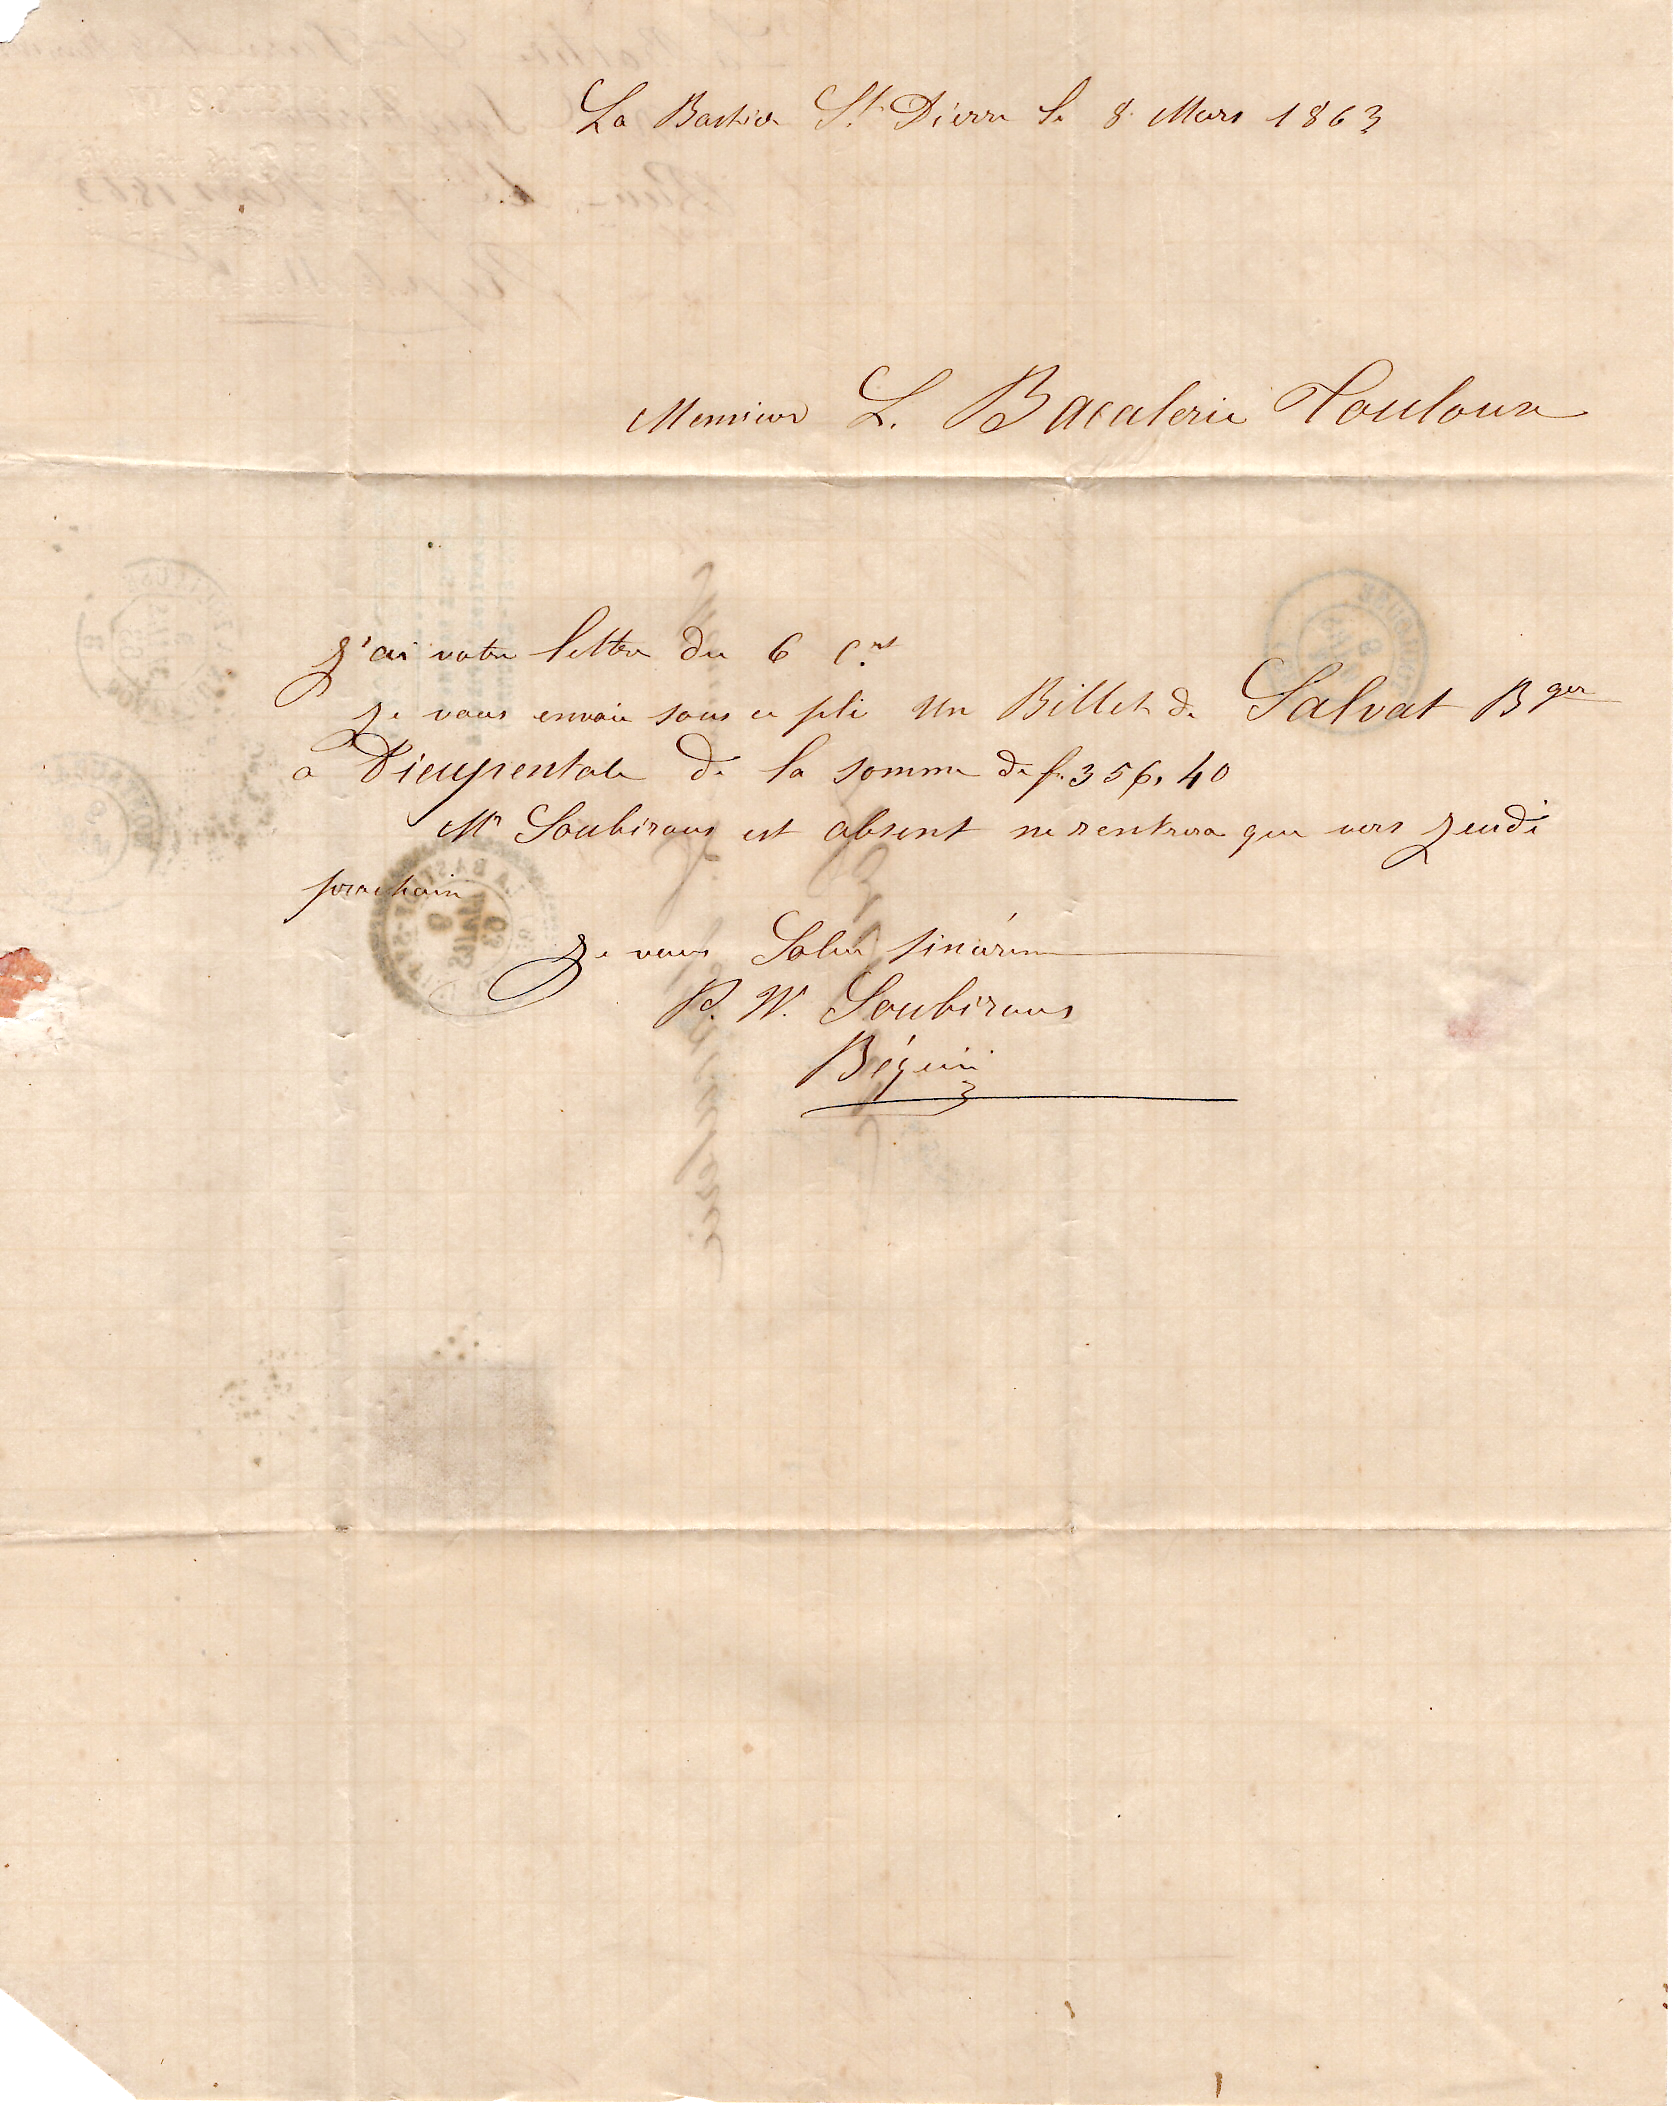 La Bastide St. Pierre le 8 Mars 1863
Monsieur L. Bacalerie Toulouse
J'ai votre lettre du 6 Ct
Je vous envoie sous ce pli un Billet de Salvat Bger
a Dieupentale de la somme de f. 356,40
Mr Soubirous est absent ne rentrera que vers Jeudi
prochain
Je vous Salue sincèrem
P. W. Soubirous
Béguin